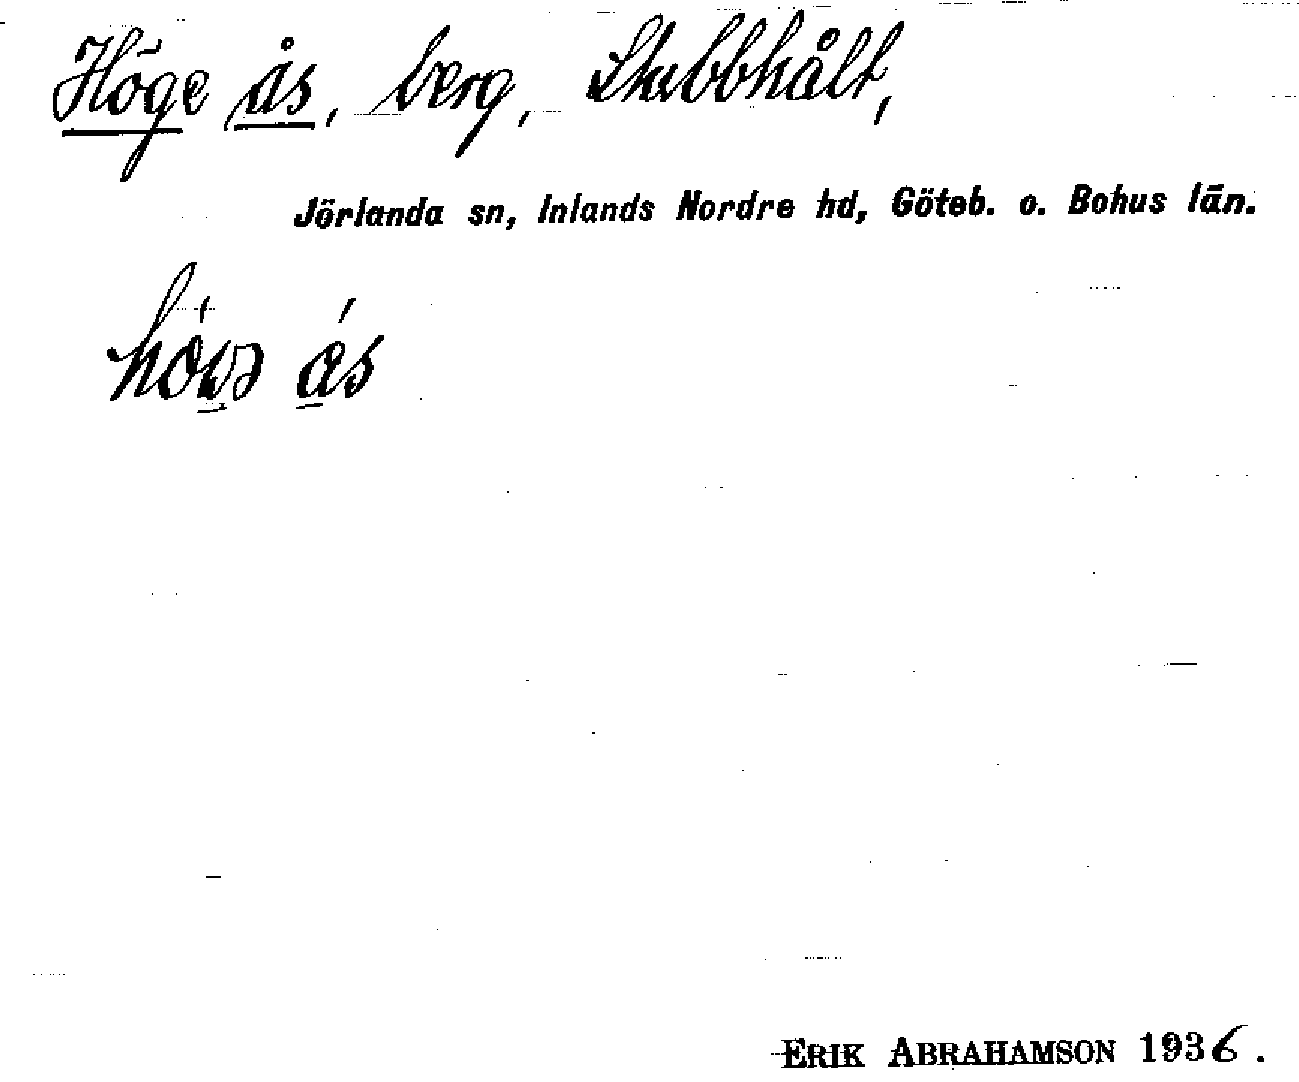 Höge ås, berg, Stubbhält,
Jörlanda sn, Inlands Nordre hd, Göteb. o. Bohus län.
ås
ERIK ABRAHAMSON 1936.